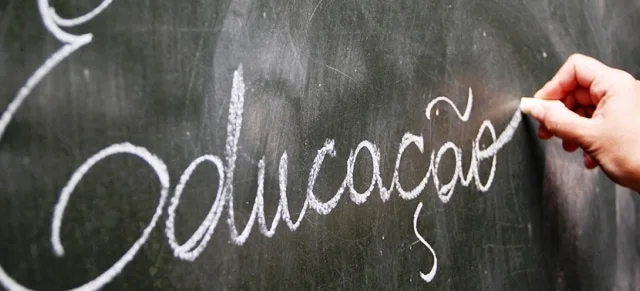 Educação